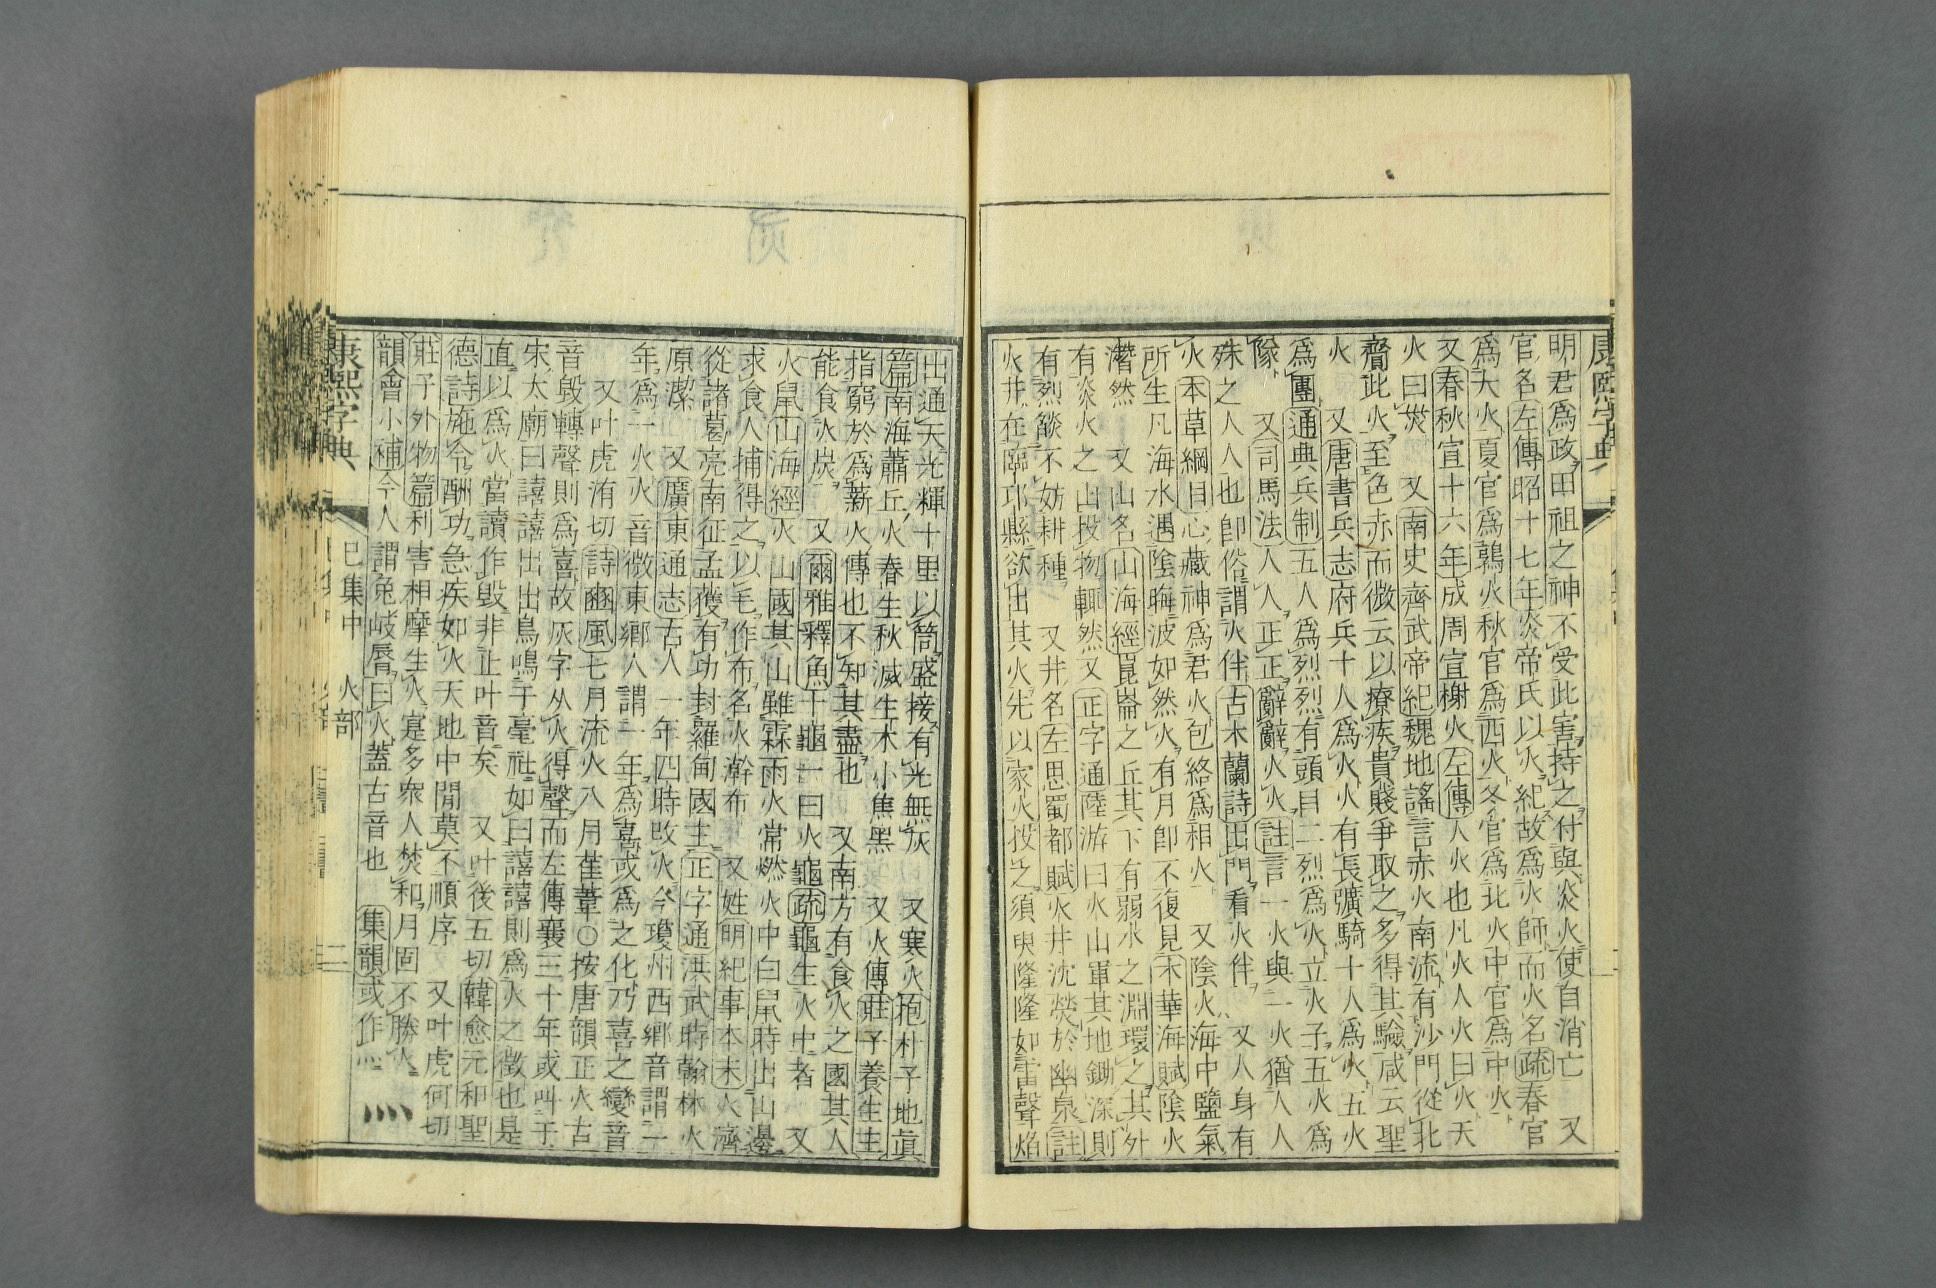 康熙字典
明君爲政田祖之神不受此害持之付與炎火使自消亡 又
官名左傳昭十七年炎帝氏以火紀故爲火師而火名疏春官
爲大火夏官爲鶉火秋官爲西火冬官爲北火中官爲中火
又春秋宣十六年成周宣榭火左傳人火也凡火人火曰火天
火曰烖 又南史齊武帝紀魏地謠言赤火南流有沙門從北
齎此火至色赤而微云以療疾貴賤爭取之多得其驗咸云聖
火 又唐書兵志府兵十人爲火火有長彍騎十人爲火五火
爲團通典兵制五人爲烈烈有頭目二烈爲火立火子五火爲
隊 又司馬法人人正正辭辭火火註言一火與一火猶人人
殊之人人也卽俗謂火伴古木蘭詩出門看火伴 又人身有
火本草綱目心藏神爲君火包絡爲相火 又陰火海中鹽氣
所生凡海水遇陰晦波如然火有月卽不復見木華海賦陰火
潛然 又山名山海經崑崙之丘其下有弱水之淵環之其外
有炎火之山投物輒然又正字通陸游曰火山軍其地鋤深則
有烈燄不妨耕種 又井名左思蜀都賦火井沈熒於幽泉註
火井在臨邛縣欲出其火先以家火投之須臾隆隆如雷聲焰
出通天光輝十里以筒盛接有光無灰 又寒火抱朴子地眞
篇南海蕭丘火春生秋滅生木小焦黑 又火傳莊子養生主
指窮於爲薪火傳也不知其盡也 又南方有食火之國其人
能食火炭 又爾雅釋魚十龜一曰火龜疏龜生火中者 又
火鼠山海經火山國其山雖霖雨火常燃火中白鼠時出山邊
求食人捕得之以毛作布名火澣布 又姓明紀事本末火濟
從諸葛亮南征孟獲有功封羅甸國主正字通洪武時翰林火
原潔 又廣東通志古人一年四時改火今瓊州西鄉音謂一
年爲一火火音微東鄉人謂一年爲喜或爲之化乃喜之變音
 又叶虎洧切詩豳風七月流火八月萑葦○按唐韻正火古
音毀轉聲則爲喜故灰字从火得聲而左傳襄三十年或叫于
宋太廟曰譆譆出出鳥鳴于亳社如曰譆譆則爲火之徵也是
直以爲火當讀作毀非止叶音矣 又叶後五切韓愈元和聖
德詩施令酬功急疾如火天地中閒莫不順序 又叶虎何切
莊子外物篇利害相摩生火寔多衆人焚和月固不勝火
韻會小補今人謂兔岐脣曰火蓋古音也 集韻或作灬
康熙字典 巳集中 火部 二